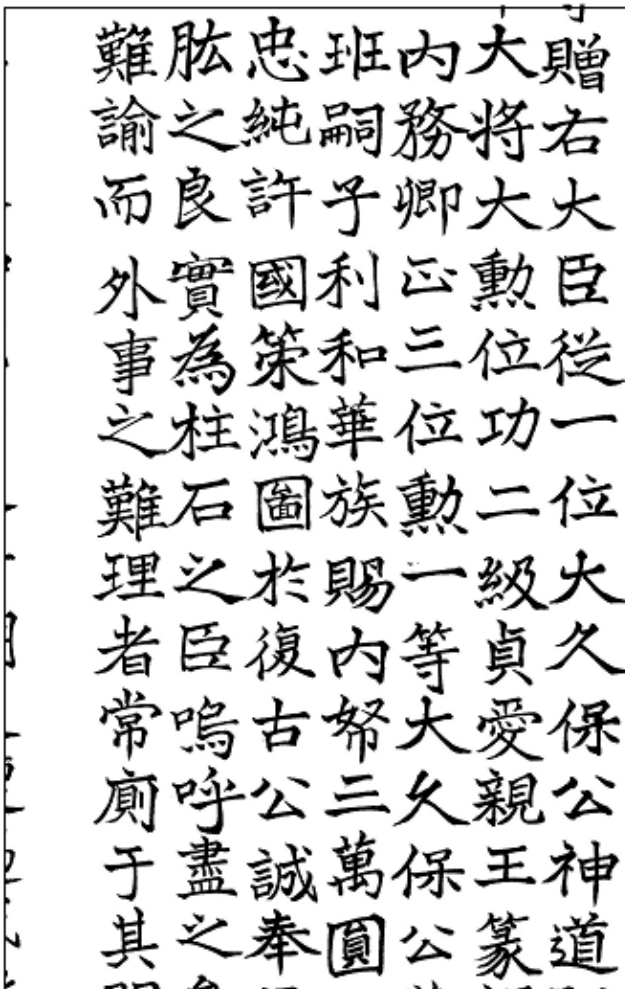 贈右大臣従一位大久保公神道
大将大勲位功二級貞愛親王篆
内務卿正三位勲一等大久保公
班嗣子利和華族賜内帑三萬圓
忠純許國策鴻圖於復古公誠奉
肱之良實為柱石之臣嗚呼盡之
難諭而外事之難理者常廁于其